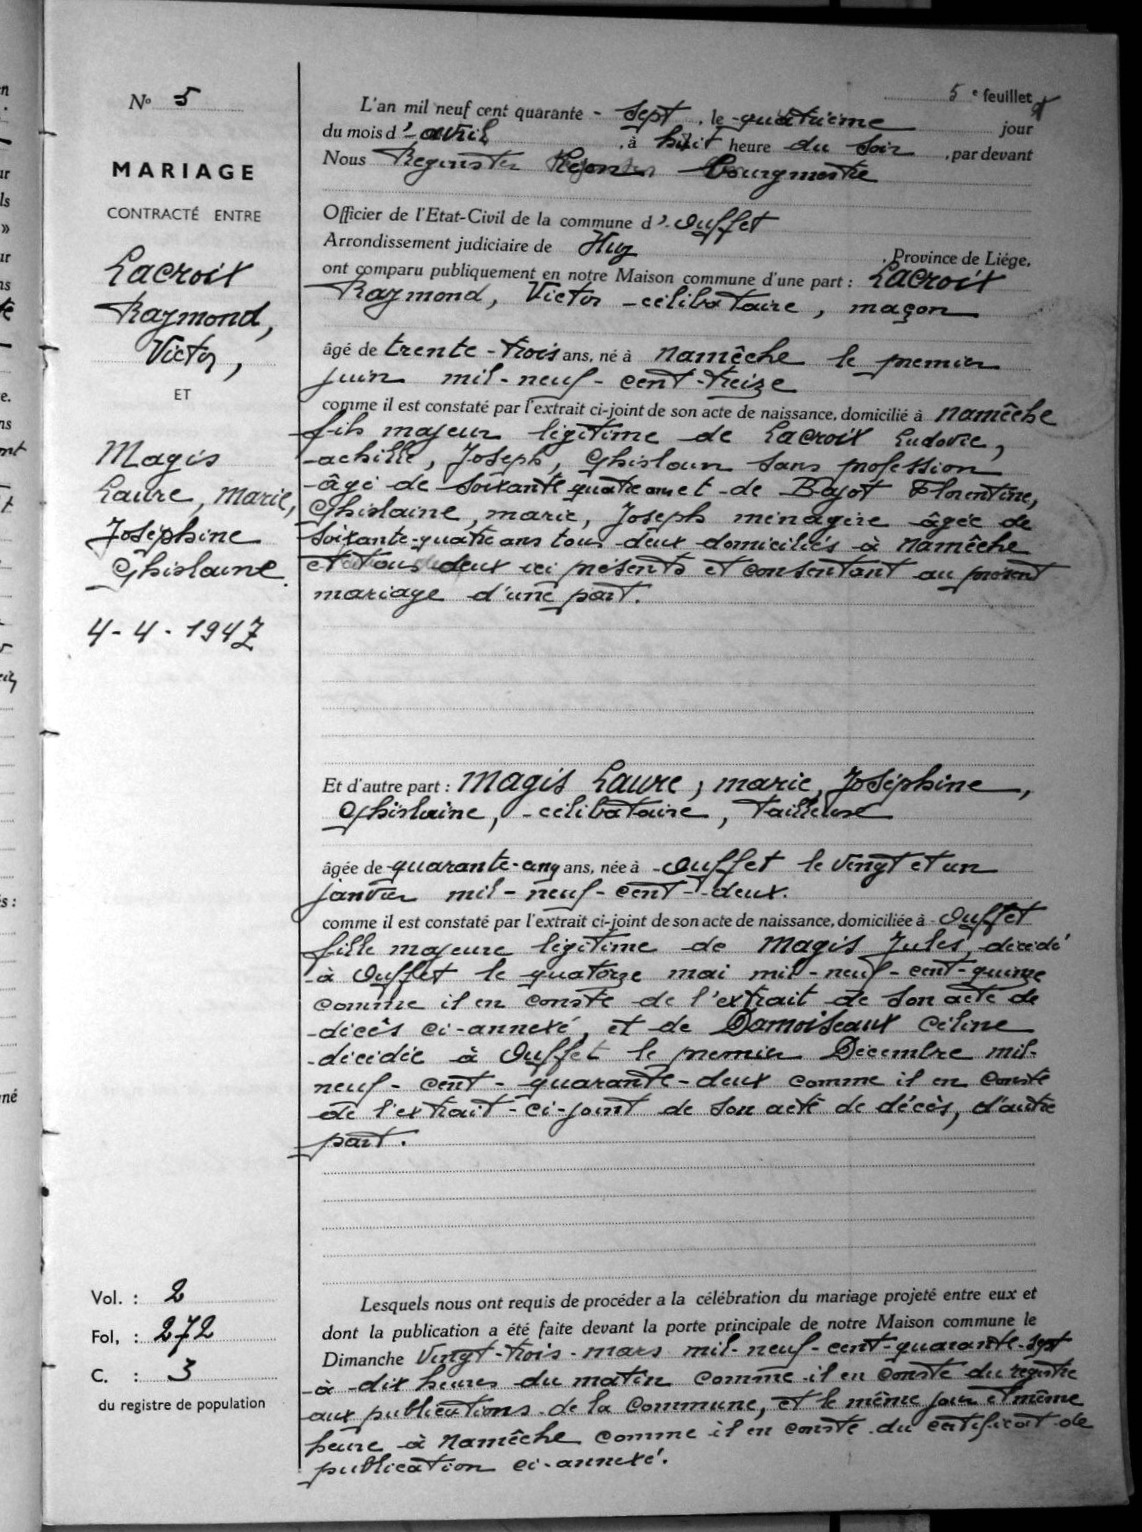 5e feuillet
N° 5
MARIAGE
CONTRACTÉ ENTRE
Lacroix
Raymond,
Victor,
ET
Magis
Laure, Marie,
Joséphine
Ghislaine.
4-4-1947
L'an mil neuf cent quarante - sept, le quatrième jour
du mois d'avril, à huit heure du soir, par devant
Nous Bourgmestre
Officier de l'Etat-Civil de la commune d'Ouffet
Arrondissement judiciaire de Huy, Province de Liége,
ont comparu publiquement en notre Maison commune d'une part : Lacroix
Raymond, Victor célibataire, maçon
âgé de trente-trois ans, né à Namêche le premier
juin mil-neuf-cent-treize
comme il est constaté par l'extrait ci-joint de son acte de naissance, domicilié à Namêche
fils majeur légitime de Lacroix Ludovic,
achille, Joseph, Ghislain sans profession
âgé de soixante quatre ans et de Bajot Florentine,
Ghislaine, marie, Joseph ménagère âgée de
soixante-quatre ans tous deux domiciliés à Namêche
et tous deux ici présents et consentant au présent
mariage d'une part.
Et d'autre part : Magis Laure, marie, Joséphine,
Ghislaine, célibataire, Tailleuse
âgée de quarante-cinq ans, née à Ouffet le vingt et un
janvier mil-neuf-cent-deux.
comme il est constaté par l'extrait ci-joint de son acte de naissance, domiciliée à Ouffet
fille majeure légitime de Magis Jules, décédé
à Ouffet le quatorze mai mil-neuf-cent-quinze
comme il en conste de l'extrait de son acte de
décès ci-annexé, et de Damoiseaux Céline
décédée à Ouffet le premier Décembre mil-
neuf-cent-quarante-deux comme il en conste
de l'extrait-ci-joint de son acte de décès, d'autre
part.
Vol. : 2
Fol, : 272
C. : 3
du registre de population
Lesquels nous ont requis de procéder a la célébration du mariage projeté entre eux et
dont la publication a été faite devant la porte principale de notre Maison commune le
Dimanche vingt-trois-mars mil-neuf-cent-quarante-sept
à dix heures du matin comme il en conste du registre
aux publications de la Commune, et le même jour et même
heure à Namêche comme il en conste du certificat de
publication ci-annexé.